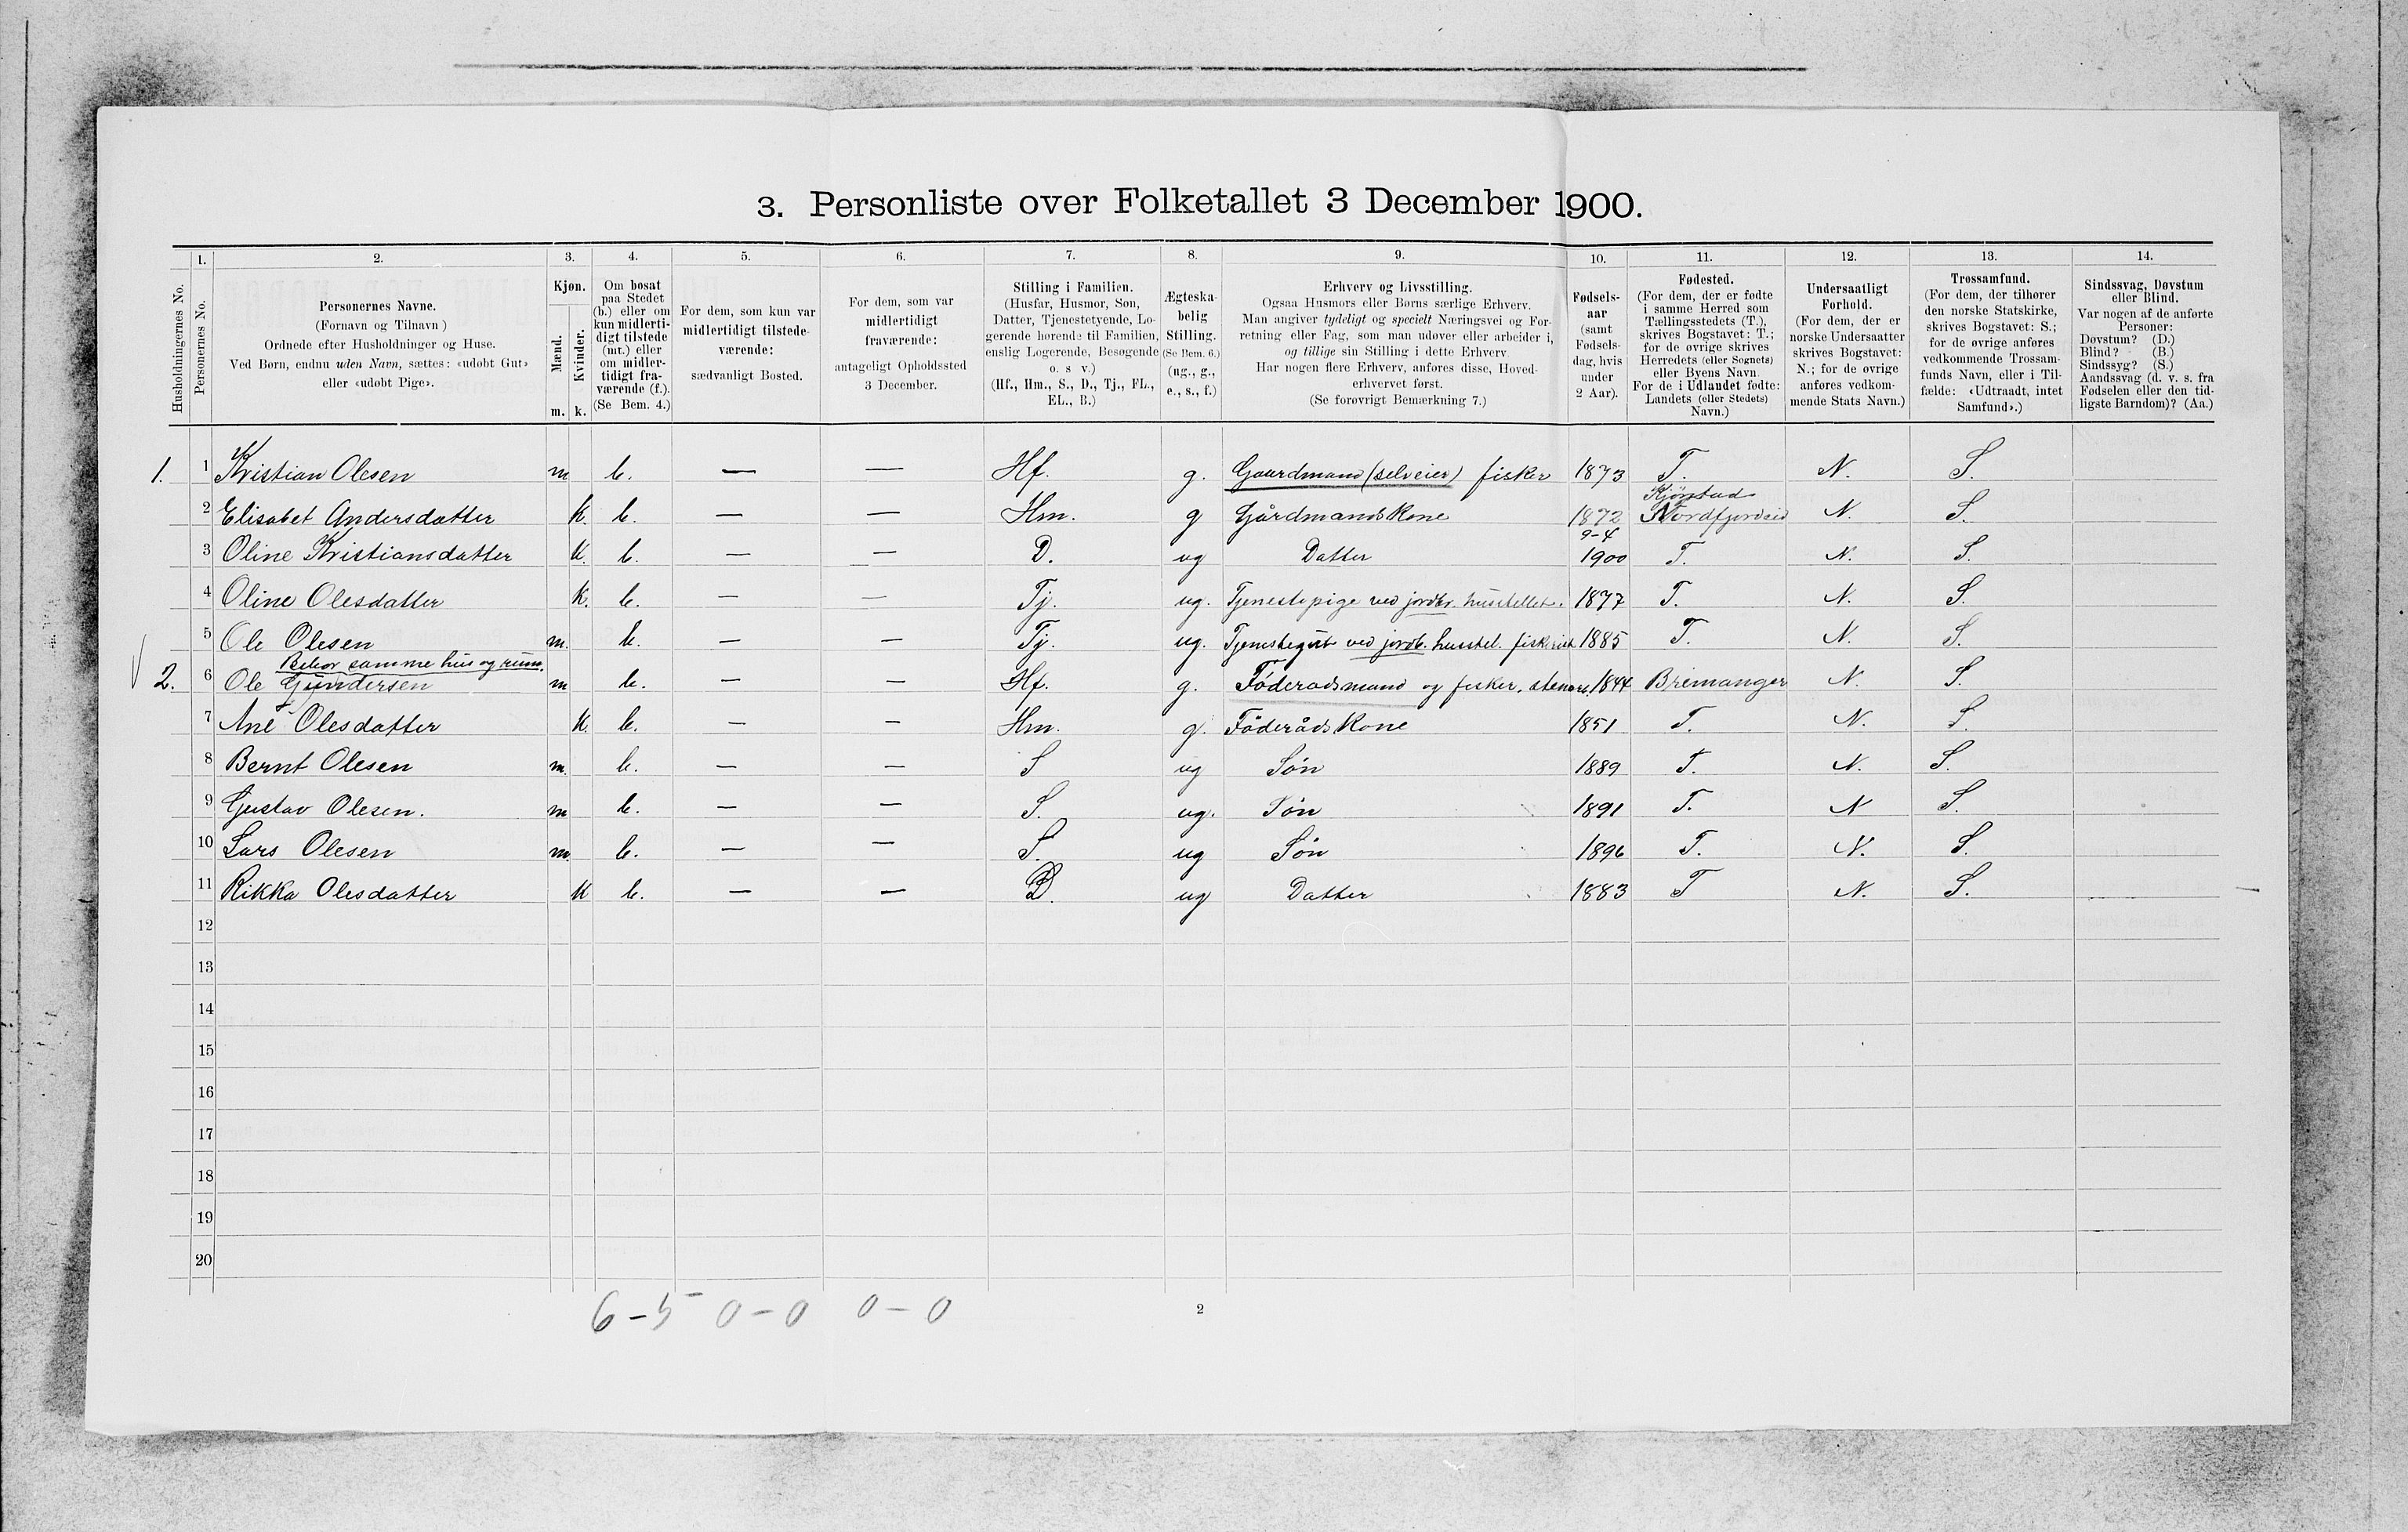 3. Personliste over Folketallet 3 December 1900.
1. 2. 3. 4. 5. 6. 7. 8. 9. 10. 11. 12. 13. 14.
Husholdningernes No.
Personernes No.
Personernes Navne.
(Fornavn og Tilnavn)
Ordnede efter Husholdninger og Huse.
Ved Børn, endnu uden Navn, sættes: «udøbt Gut»
eller «udøbt Pige».
Kjøn.
Mænd. Kvinder.
m. k.
Om bosat
paa Stedet
(b.) eller om
kun midlerti-
digt tilstede
(mt.) eller
om midler-
tidigt fra-
værende (f.).
(Se Bem. 4.)
For dem, som kun var
midlertidigt tilstede-
værende:
sædvanligt Bosted.
For dem, som var
midlertidigt
fraværende:
antageligt Opholdssted
3 December.
Stilling i Familien.
(Husfar, Husmor, Søn,
Datter, Tjenestetyende, Lo-
gerende hørende til Familien,
enslig Logerende, Besøgende
o. s v.)
(Hf., Hm., S., D., Tj., FL.,
EL., B.)
Ægteska-
belig
Stilling.
(Se Bem. 6.)
(ug., g.,
e., s., f.)
Erhverv og Livsstilling.
Ogsaa Husmors eller Børns særlige Erhverv.
Man angiver tydeligt og specielt Næringsvei og For-
retning eller Fag, som man udøver eller arbeider i,
og tillige sin Stilling i dette Erhverv.
Har nogen flere Erhverv, anføres disse, Hoved-
erhvervet først.
(Se forøvrigt Bemærkning 7.)
Fødsels-
aar
(samt
Fødsels-
dag, hvis
under
2 Aar).
Fødested.
(For dem, der er fødte
i samme Herred som
Tællingsstedets (T.),
skrives Bogstavet: T.;
for de øvrige skrives
Herredets (eller Sognets)
eller Byens Navn.
For de i Udlandet fødte:
Landets (eller Stedets)
Navn.)
Undersaatligt
Forhold.
(For dem, der er
norske Undersaatter
skrives Bogstavet:
N.; for de øvrige
anføres vedkom-
mende Stats Navn.)
Trossamfund.
(For dem, der tilhører
den norske Statskirke,
skrives Bogstavet: S.;
for de øvrige anføres
vedkommende Trossam-
funds Navn, eller i Til-
fælde: «Udtraadt, intet
Samfund».)
Sindssvag, Døvstum
eller Blind.
Var nogen af de anførte
Personer:
Døvstum? (D.)
Blind? (B.)
Sindssyg? (S.)
Aandssvag (d. v. s. fra
Fødselen eller den tid-
ligste Barndom)? (Aa.)
1. 1 Kristian Olesen m b. — — Hf. g. Gaardmand (selveier) fisker 1873 T. N. S.
Kjørstad
2 Elisabet Andersdatter k. b. — — Hm. g Gårdmands Kone 1872 Nordfjordeid N. S.
9-4
3 Oline Kristiansdatter k. b. — — D. ug Datter 1900 T. N. S.
4 Oline Olesdatter k. b. — — Tj. ug. Tjenestepige ved jordbr. husstellet. 1877 T. N. S.
5 Ole Olesen m. b. — — Tj. ug. Tjenestegut ved jordb. husstel. 1885 T. N. S.
Bebor samme hus og rum.
2. 6 Ole Gundersen m b. — — Hf. g. Föderadsmand og fisker. 1844 Bremanger N. S.
7 Ane Olesdatter k. b. — — Hm. g. Föderåds Kone 1851 T. N. S.
8 Bernt Olesen m. b. — — S ug Søn 1889 T. N. S.
9 Gustav Olesen. m b. — — S. ug. Søn 1891 T. N S.
10 Lars Olesen m. b. — — S. ug Søn 1896 T. N. S.
11 Rikka Olesdatter k b. — — D. ug Datter 1883 T N. S.
12
13
14
15
16
17
18
19
20
6-5 0-0 0-0
2